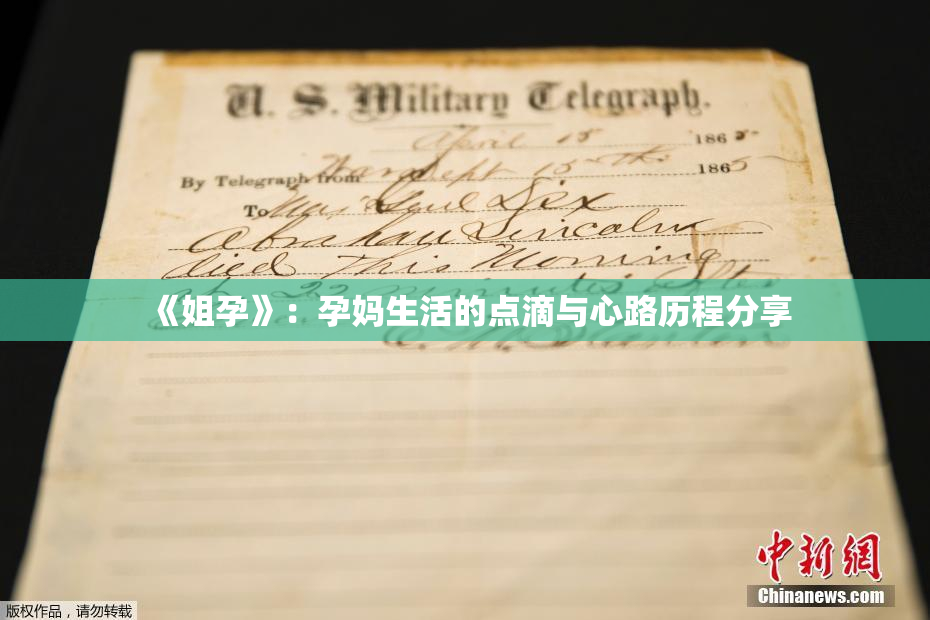 U. S. Military Telegraph.
April 15 1865
By Telegraph from War Dept 15th 1865
To Maj Genl Dix
Abraham Lincoln
died This Morning
at 22 minutes after
《姐孕》：孕妈生活的点滴与心路历程分享
E. M. Stanton
中新网
Chinanews.com
版权作品，请勿转载